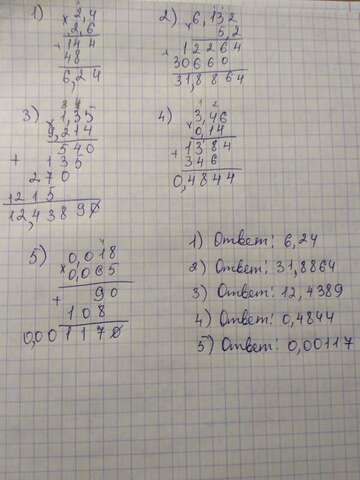 1) 2,4
× 2,6
+ 144
48
6,24
2) × 6,132
5,2
+ 12264
30660
31,8864
3) × 1,35
9,214
540
+ 135
270
1215
12,43890
4) × 3,46
0,14
+ 1384
346
0,4844
5) 0,018
× 0,065
+ 90
108
0,001170
1) Ответ: 6,24
2) Ответ: 31,8864
3) Ответ: 12,4389
4) Ответ: 0,4844
5) Ответ: 0,00117